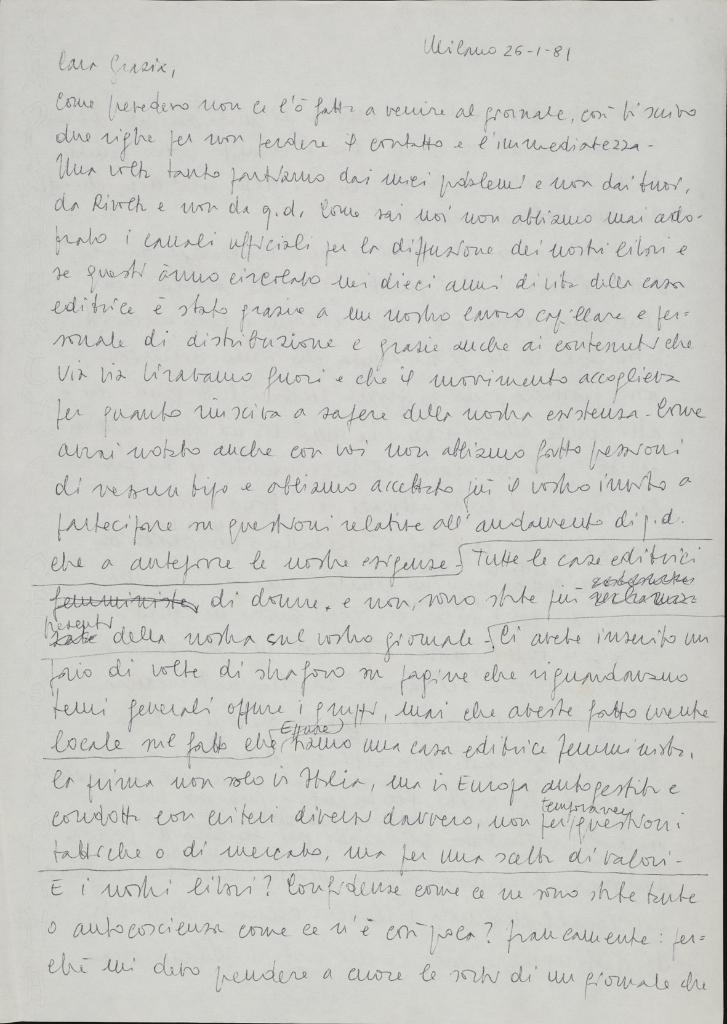 Milano 26-1-81
Cara Grazia,
come prevedevo non ce l'ò fatta a venire al giornale, così ti scrivo
due righe per non perdere il contatto e l'immediatezza -
Una volta tanto partiamo dai miei problemi e non dai tuoi,
da Rivolta e non da q.d. Come sai noi non abbiamo mai ado-
prato i canali ufficiali per la diffusione dei nostri libri e
se questi ànno circolato nei dieci anni di vita della casa
editrice è stato grazie a un nostro lavoro capillare e per-
sonale di distribuzione e grazie anche ai contenuti che
via via tiravamo fuori e che il movimento accoglieva
per quanto riusciva a sapere della nostra esistenza - Come
avrai notato anche con voi non abbiamo fatto pressioni
di nessun tipo e abbiamo accettato più il vostro invito a
partecipare su questioni relative all'andamento di q.d.
che a anteporre le nostre esigenze. Tutte le case editrici
femministe, di donne, e non, sono state più
presenti della nostra sul vostro giornale. Ci avete inserito un
paio di volte di straforo su pagine che riguardavano
temi generali oppure i gruppi, mai che aveste fatto mente
locale sul fatto che siamo una casa editrice femminista,
Eppure
la prima non solo in Italia, ma in Europa autogestita e
condotta con criteri diversi davvero, non per temporanee questioni
tattiche o di mercato, ma per una scelta di valori -
E i nostri libri? Confidenze come ce ne sono state tante
o autocoscienza come ce n'è così poca? Francamente: per-
ché mi devo prendere a cuore le sorti di un giornale che